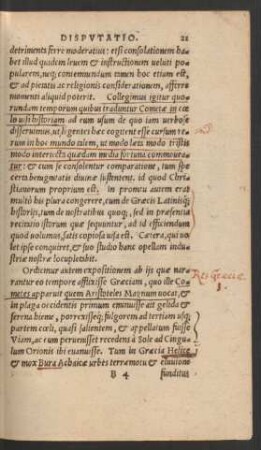 DISPVTATIO. 22
detrimenta ferre moderatius: etsi consolationem ha-
bet illud quidem leuem & instructionem ueluti po-
pularem, neq; contemnendum tamen hoc etiam est,
& ad pietatis ac religionis considerationem, afferre
momenti aliquid poterit. Collegimus igitur quo-
rundam temporum quibus traduntur Cometæ in cœ
lo usi historiam ad eum usum de quo iam uerbose
disseruimus, ut legentes hæc cogitent esse cursum re-
rum in hoc mundo talem, ut modo læta modo tristia
modo interiecto quædam media fortuna commoueã-
tur: & cum se consolentur comparatione, tum syn-
cera benignitatis diuinæ sustentent. id quod Chri-
stianorum proprium est. in promtu autem erat
multò his plura congerere, cum de Græcis Latinisq;
historijs, tum de nostratibus quoq; sed in præsentia
recensio istorum quæ sequuntur, ad id efficiendum
quod uolumus, satis copiosa uisa est. Cætera, qui uo-
let ipse conquiret, & suo studio hanc opellam indu-
striæ nostræ locupletabit.
Ordiemur autem expositionem ab ijs quæ nar-
rantur eo tempore afflixisse Græciam, quo ille Co-
metes apparuit quem Aristoteles Magnum uocat, &
in plaga occidentis primum emicuisse ait gelida &
serena hieme, porrexisseq; fulgorem ad tertiam usq;
partem cœli, quasi salientem, & appellatum fuisse
Viam, ac cum peruenisset recedens à Sole ad Cingu-
lum Orionis ibi euanuisse. Tum in Græcia Helice
& mox Bura Achaicæ urbes terræmotu & eluuione
B 4 funditus
Res Græciæ
1.